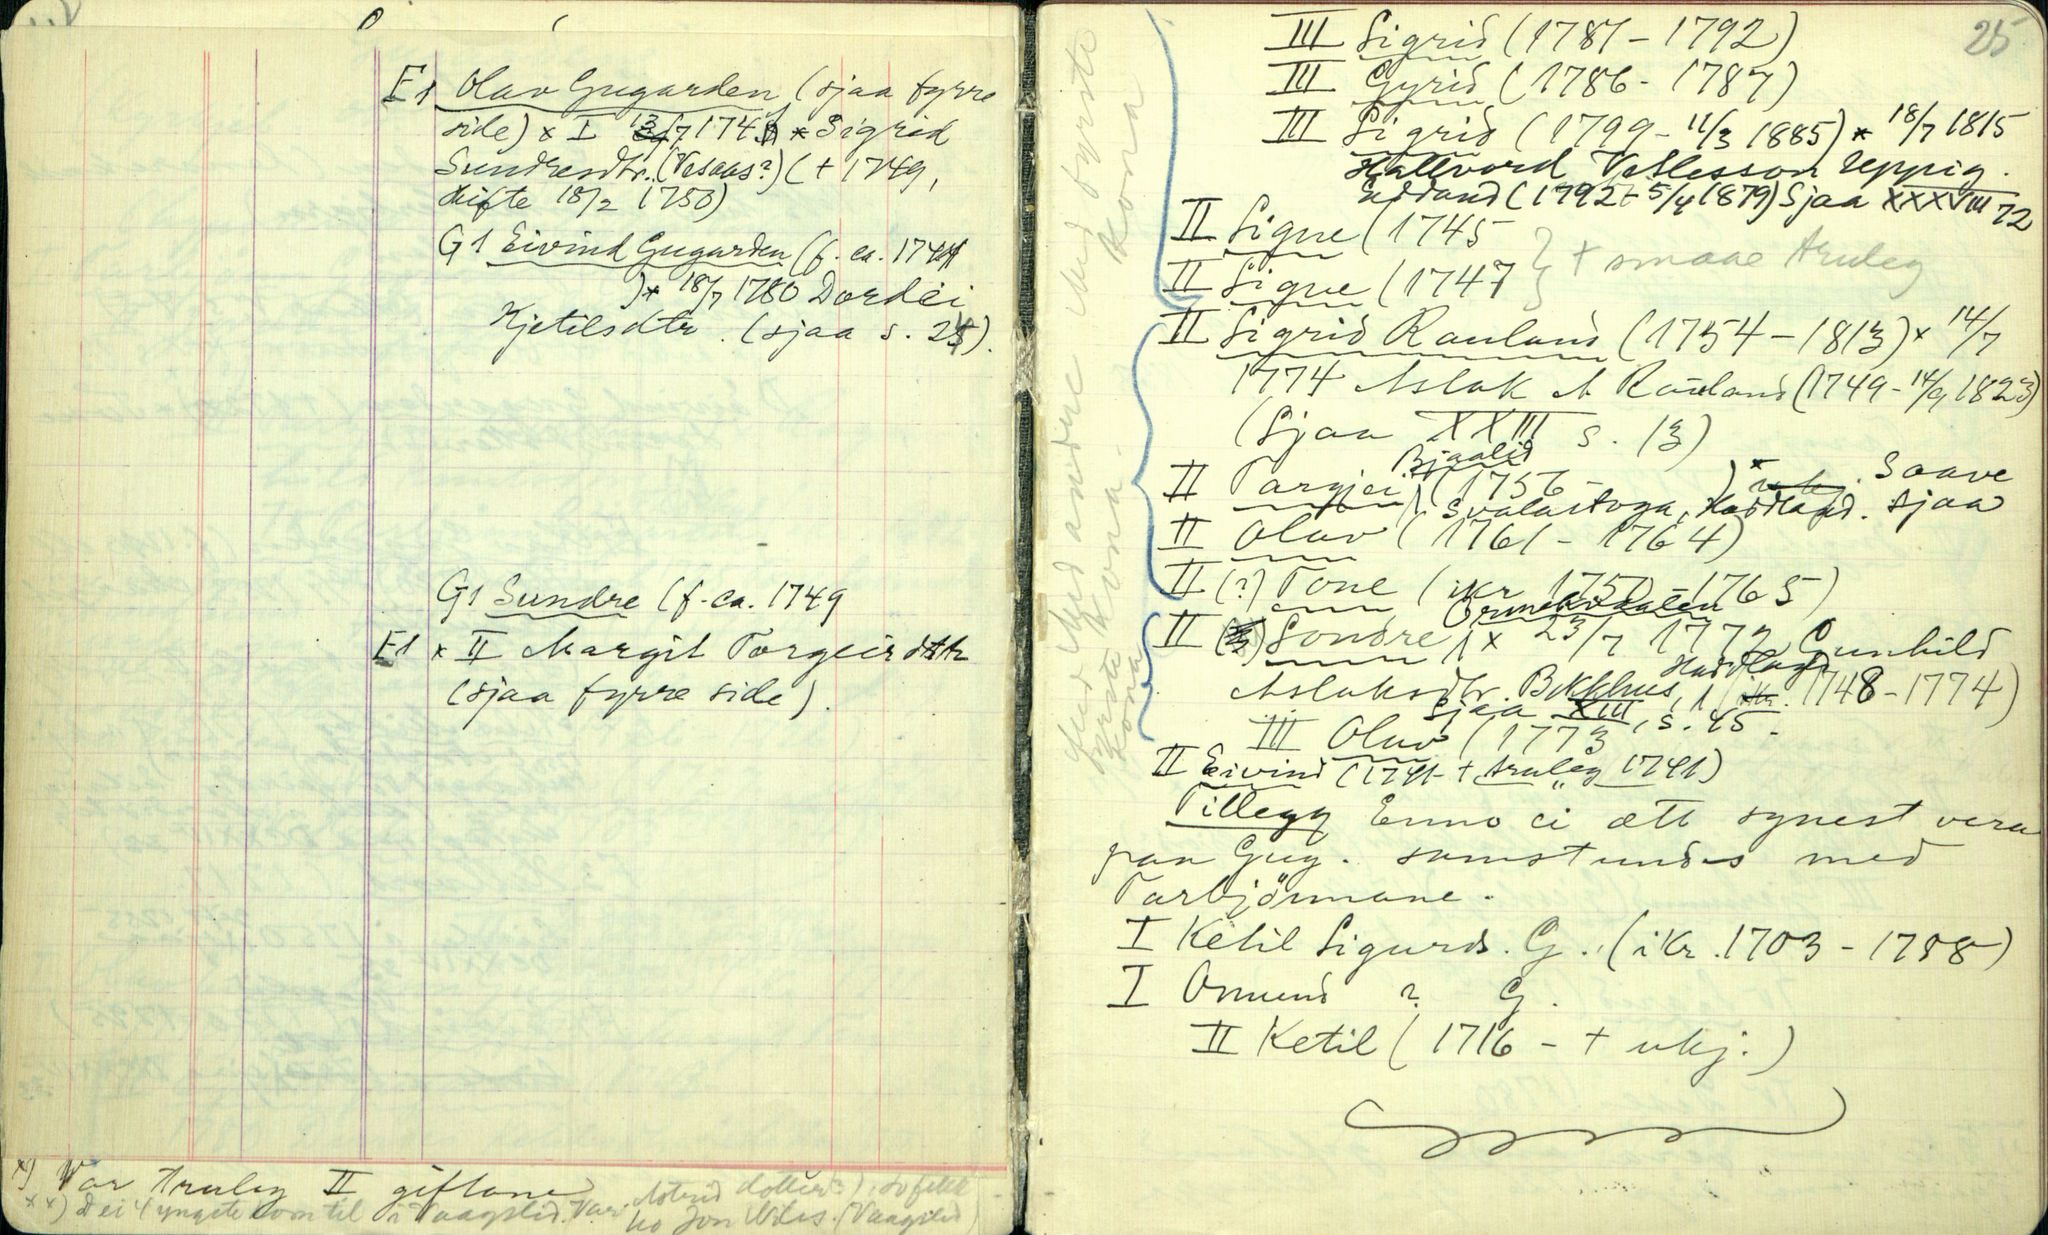 E1 Olav Gugarden (sjaa fyrre
side) x I /7 174 x Sigrid
Sundresdtr. (Vesaas?) († 1749,
skifte 18/2 1750)
G1 Eivind Gugarden (f. ca. 174
) x 18/7 1780 Dordei
Kjetilsdtr. (sjaa s. 25).
G1 Sundre (f. ca. 1749
E1 x II Margit Torgeirsdtr
(sjaa fyrre side).
x) Var truleg II giftane
xx) Dei 4 yngste kom til i Vaagslid. Var Astrid dotter?), so fekk
ho Jon Nils. (Vaagslid)
25
III Sigrid (1781 - 1792)
III Gyrid (1786 - 1787)
III Sigrid (1799 - 11/3 1885) x 18/7 1815
Hallvord Vetlesson Uppig.
(1792 - 5/4 1879) Sjaa XXXVIII 72
II Signe (1745
II Signe (1747 } † smaae truleg
II Sigrid Rauland (1754 - 1813) x 14/7
1774 Aslak A Rauland (1749 - 14/9 1823)
(Sjaa XXIII s. 13)
II Targjei Bjaalid (1756 - ) x Saave
Svalastoga, . sjaa
II Olav (1761 - 1764)
II (?) Tone (ikr 1750 - 1765)
II Sondre x 23/7 1772 Gunhild
Aslaksdtr. Bekkhus, 1748 - 1774)
Sjaa XIII, s. 45.
III Olav (1773
II Eivind (1741 - † truleg 1741)
med fyrste kona
Med andre kona.
Med fyrste kona
Tillegg Enno ei ætt synest vera
paa Gug. samstundes med
Tarbjörnane.
I Ketil Sigurds. G. (ikr. 1703 - 1788)
I Omund ? G.
II Ketil (1716 - † ukj.)